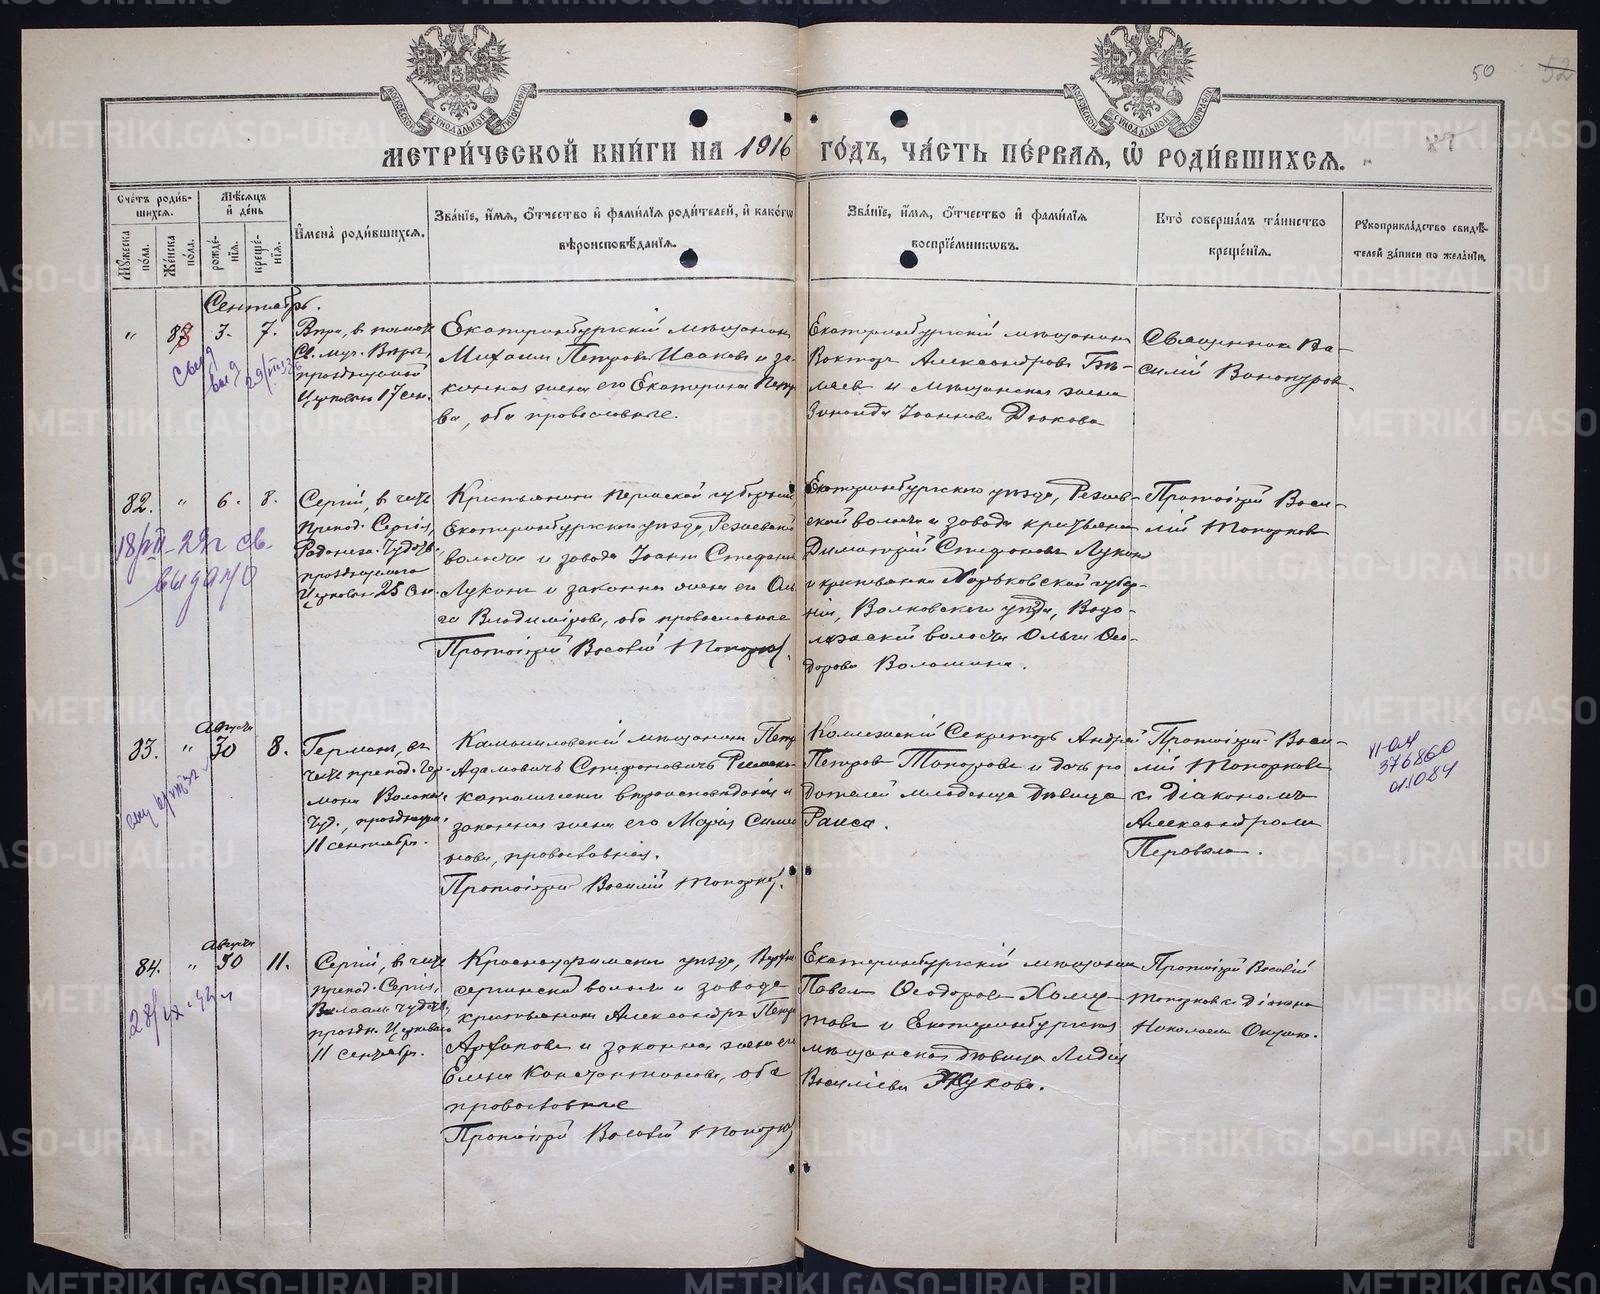 50 52
МЕТРИ́ЧЕСКОЙ КНИ́ГИ НА 1916 ГО́ДЪ, ЧА́СТЬ ПЕ́РВАЯ, Ѡ РОДИ́ВШИХСЯ.
Сче́тъ роди́в-
шихся.
Мѣ́сяцъ
и де́нь
Му́жеска по́ла.
Же́нска по́ла.
рожде́-
нія.
креще́-
нія.
Имена̀ роди́вшихся.
Зва́ніе, и́мя, о́тчество и фами́лія роди́телей, и како́гѡ
вѣроисповѣ́данія.
Зва́ніе, и́мя, о́тчество и фами́лія
воспріе́мникѡвъ.
Кто̀ соверша́лъ та́инство
креще́нія.
Рукоприкла́дство свидѣ́-
телей за́писи по жела́нію.
Сентябрь.
" 83 3. 7.
Вѣра, в память
Св. муч. Вѣры,
празднуемой
Церковью 17 сен.
Екатеринбургскій мѣщанин
Михаил Петров Исаков и за-
конная жена его Екатерина Петро
ва, оба православные.
Екатеринбургскій мѣщанин
Виктор Александров Бѣ-
ляев и мѣщанская жена
Зинаида Іоаннова Дюкова
Священник Ва-
силій Винокуров.
82. " 6. 8.
18/VII-29г св.
выдано
Сергій, в честь
препод. Сергія,
Радонеж. Чудотв.
празднуемого
Церковью 25 Сен.
Крестьянин Пермской губерніи
Екатеринбургскаго уѣзда, Режевской
волости и завода Іоанн Стефанов
Лукин и законная жена его Оль
га Владимірова, оба православные
Протоіерей Василій Топорков
Екатеринбургскаго уѣзда, Режев-
ской волости и завода крестьянин
Димитрій Стефанов Лукин
и крестьянка Харьковской губер-
ніи, Волковскаго уѣзда, Водо-
лажской волости Ольга Ѳео-
дорова Волошина.
Протоіерей Васи-
лій Топорков
Август
83. " 30 8.
Герман, въ
честь препод. Гер-
мана Валаам.
Чуд., празднуем.
11 сентябр.
Камышловскій мѣщанин Петр
Адамовичъ Стефановичъ Римско-
католическаго вѣроисповѣданія и
законная жена его Марія Симео
нова, православная.
Протоіерей Василій Топорков.
Коллежскій Секретарь Андрей
Петров Топорков и дочь ро
дителей младенца дѣвица
Раиса.
Протоіерей Васи-
лій Топорков
с Діакономъ
Александром
Перовым.
VI-АИ
376860
01.1084
Август
84. " 30 11.
28/IX-42 г
Сергій, в честь
препод. Сергія,
Валаам. чудотв.,
праздн. Церковью
11 сентябр.
Красноуфимскаго уѣзда, Верхне
сергинской волости и завода
крестьянин Александръ Петро
Арфанов и законная жена его
Елена Константинова, оба
православные
Протоіерей Василій Топорков
Екатеринбургскій мѣщанин
Павел Ѳеодоров Хому-
тов и Екатеринбургская
мѣщанская дѣвица Лидія
Васильева Жукова.
Протоіерей Василій
Топорков с Діакон
Николаем